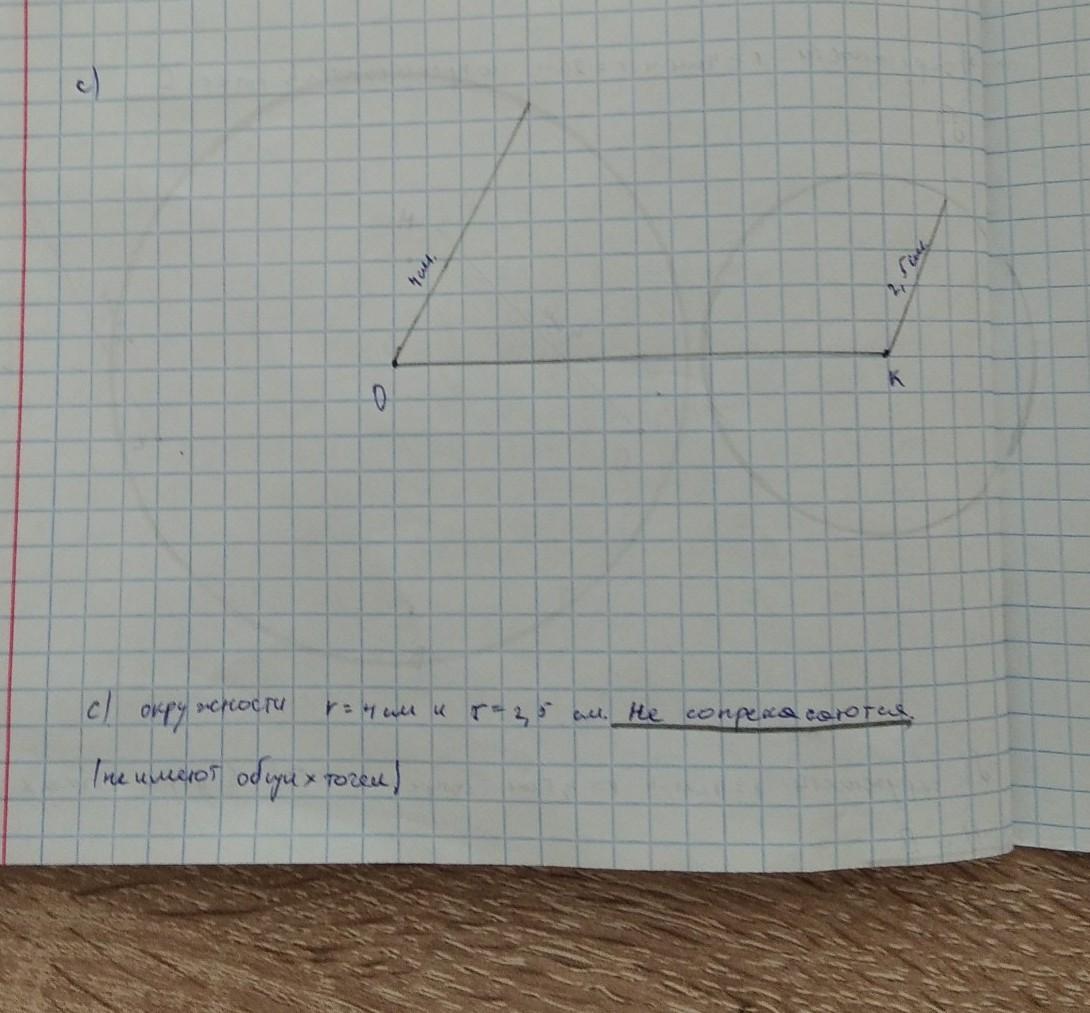 c)
4см.
2,5см
O
K
c) окружности r=4см и r=2,5 см. Не сопрекасаются.
(не имеют общих точек)